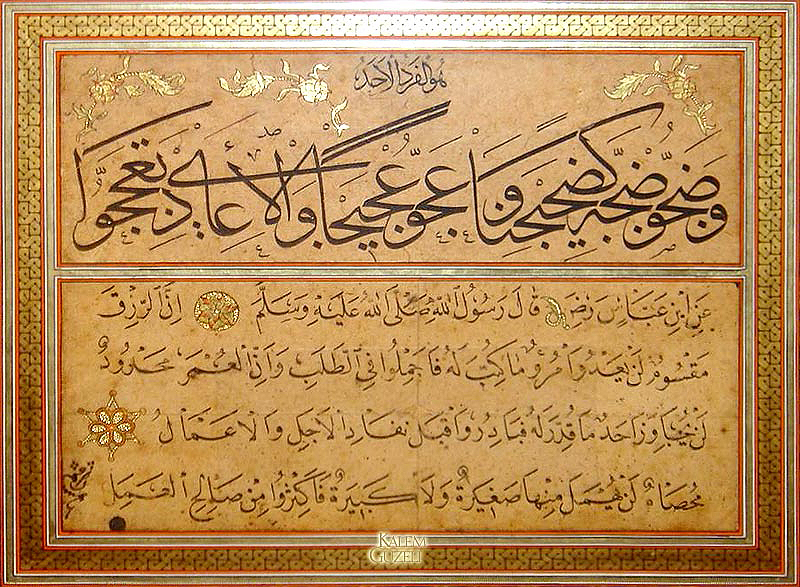 هو الفرد الاحد
وضجوا ضجة كضجيجنا وعجوا عجيجا والاعادي
عَنِ ابْنِ عَبَّاسٍ رَضِىَ قَالَ رَسُولُ اللهِ صَلَّى اللهُ عَلَيْهِ وَسَلَّمَ اِنَّ الرِّزْقَ
مَقْسُومٌ لَنْ يَعْدُوَ امْرُؤٌ مَا كُتِبَ لَهُ فَاَجْمِلُوا فِي الطَّلَبِ وَاِنَّ الْعُمَرَ مَحْدُودٌ
لَنْ يُجَاوِزَ اَحَدٌ مَا قُدِّرَ لَهُ فَبَادِرُوا قَبْلَ نَفَادِ الْاَجَلِ وَالْاَعْمَالُ
مُحْصَاةٌ لَنْ يُهْمَلَ مِنْهَا صَغِيرَةٌ وَلَا كَبِيرَةٌ فَاَكْثِرُوا مِنْ صَالِحِ الْعَمَلِ
KALEM
GÜZELİ